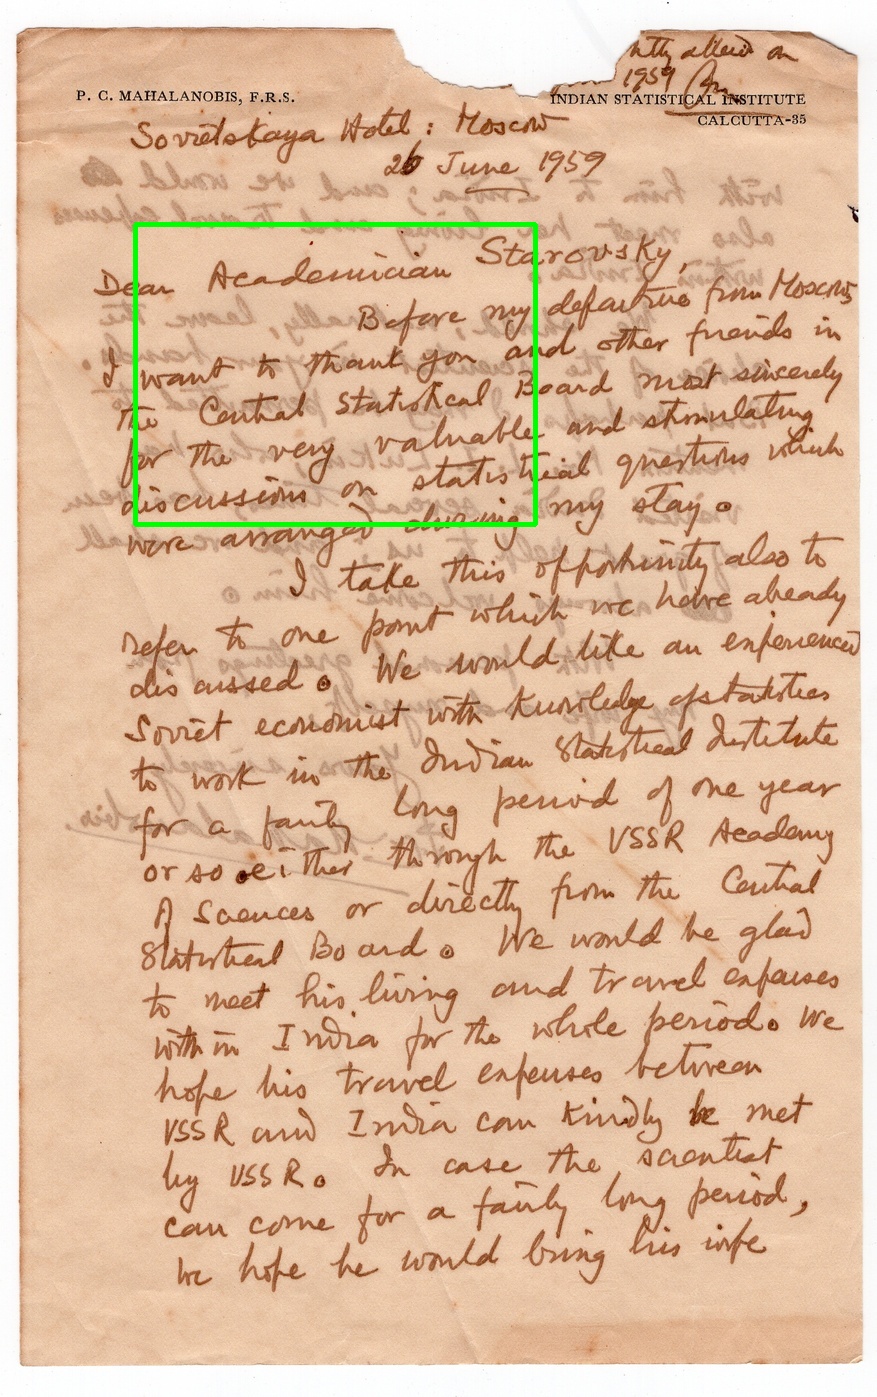 ntly allied on
1959
P. C. MAHALANOBIS, F.R.S.
INDIAN STATISTICAL INSTITUTE
CALCUTTA-35
Sovietskaya Hotel : Moscow
26 June 1959
Dear Academician Starovsky,
Before my departure from Moscow
I want to thank you and other friends in
the Central Statistical Board most sincerely
for the very valuable and stimulating
discussions on statistical questions which
were arranged during my stay.
I take this opportunity also to
refer to one point which we have already
discussed. We would like an experienced
Soviet economist with knowledge of statistics
to work in the Indian Statistical Institute
for a fairly long period of one year
or so either through the USSR Academy
of Sciences or directly from the Central
Statistical Board. We would be glad
to meet his living and travel expenses
within India for the whole period. We
hope his travel expenses between
USSR and India can kindly be met
by USSR. In case the scientist
can come for a fairly long period,
we hope he would bring his wife